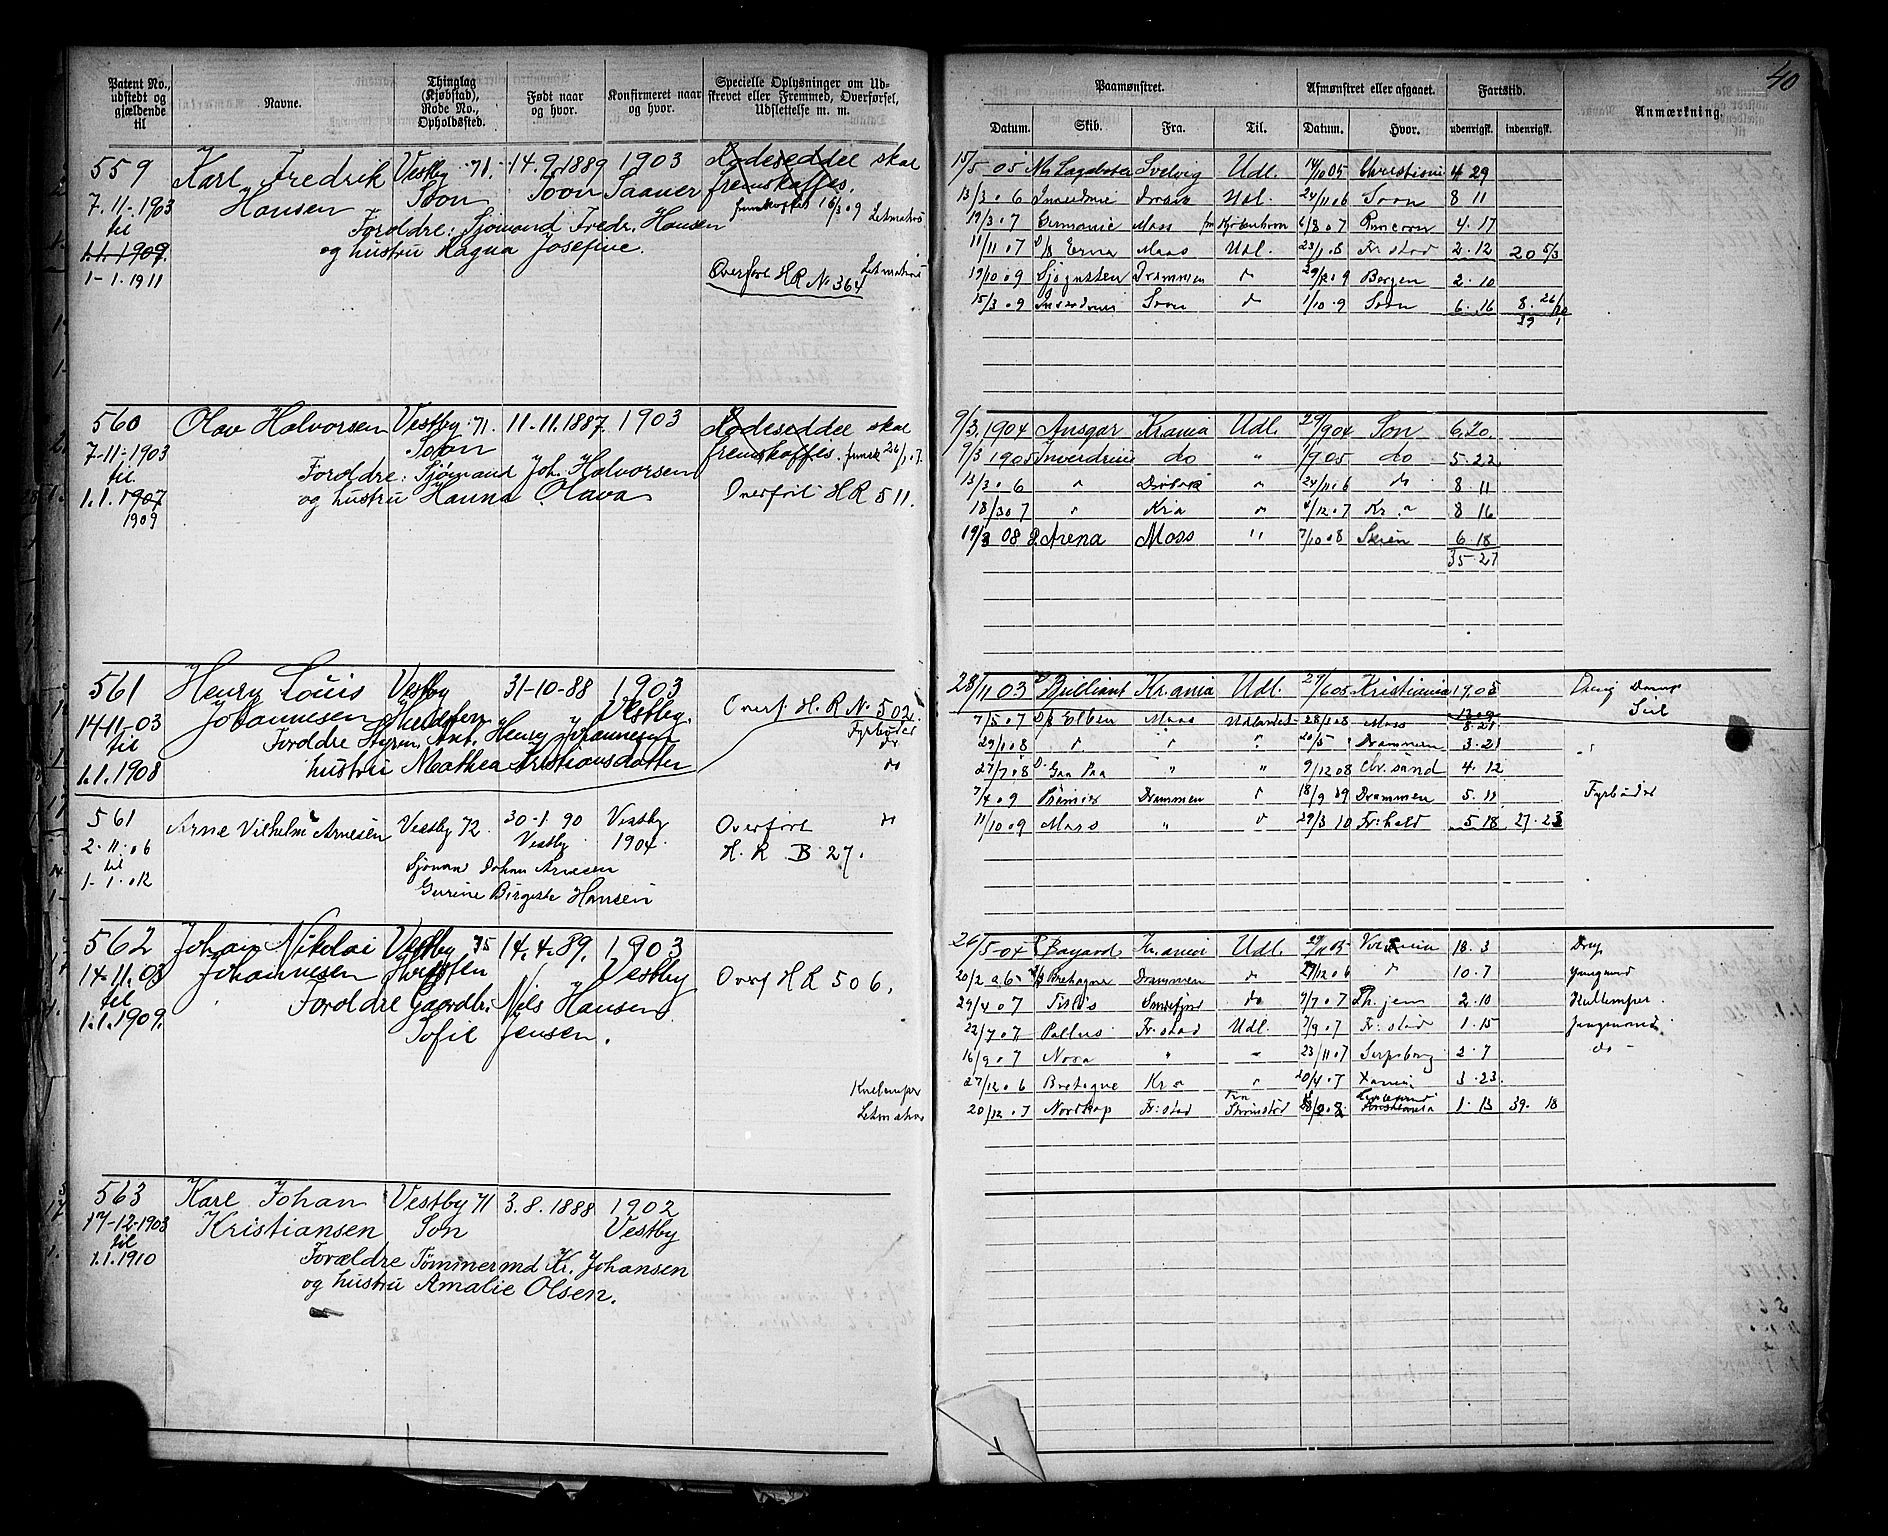 40
Patent No., udstedt og gjældende til
Navne.
Thinglag (Kjøbstad), Rode No., Opholdssted.
Født naar og hvor.
Konfirmeret naar og hvor.
Specielle Oplysninger om Udstrevet eller Fremmed, Overførsel, Udslettelse m. m.
559 Karl Fredrik Vestby 71. 14.9.1889 1903 Rodeseddel skal
7.11.1903 Hansen Soon Soon Saaner fremskaffes.
til Foroldre: Sjømand Fredr. Hansen 16/3 09 Letmatros
1.1.1909. og hustru Ragna Josefine.
1-1.1911 Overført H R No 364 Letmatros
560 Olav Halvorsen Vestby 71. 11.11.1887. 1903 Rodeseddel skal
7-11-1903 Soon fremskaffes. 26/1 07.
til Foroldre: Sjømand Joh. Halvorsen
1.1.1907 og hustru Hanna Olava Overført H R 511.
1909
561 Henry Louis Vestby 31-10-88 1903
14-11-03 Johannesen Vestby. Overf. H. R No. 502.
til Foroldre Styrm. Ant. Henry Johannesen Fyrbøder
1.1.1908 hustru Mathea Kristiansdatter do
do
561 Arne Vilhelm Arnesen Vestby 72. 30-1.90 Vestby Overført do
2.11.06 Vestby 1904. H. R B 27.
til Sjømand Johan Arnesen
1-1.012 Gurine Birgeste Hansen
562 Johan Nikolai Vestby 75 14.4.89. 1903
14-11.03 Johannesen Vestby Overf H R 506.
til Foroldre Gaardbr. Nils Hansen
1.1.1909. Sofie Jensen.
Letmatros
563 Karl Johan Vestby 71 3.8.1888 1902
17-12-1903 Kristiansen Son Vestby
til Forældre Tømmermd Kr. Johansen
1.1.1910 og hustru Amalie Olsen.
Paamønstret. Afmønstret eller afgaaet. Fartstid. Anmærkning.
Datum. Skib. Fra. Til. Datum. Hvor. udenrigsk. indenrigsk.
15/5 05 Svelvig Udl. 14/10 05 Christiania 4 29
13/3 06 Drøbak Udl. 24/11 06 Soon 8 11
19/3 07 Germanic Moss Kjøbenhavn 6/8 07 Runcorn 4.17
11/11 07 Erna Moss Udl. 23/1 08 Fr.stad 2.12 20 5/3
19/10 09 Drammen 29/12 09 Bergen 2.10
15/3 09 Soon do 1/10 09 Soon 6.16 8. 26/10
39 1
9/3.1904 Ansgar Krania Udl. 29/9 04 Son 6.20.
9/3 1905 Inverdruie do " 1/9 05 do 5.22
13/3 06 " Drøbak " 24/11 06 " 8 11
18/3 07 " Kria " 4/12.07 Kr.a 8 16
19/3 08 Arena Moss " 7/10 08 Skien 6 18
35.27
28/11 03 Brilliant Kr.ania Udl. 27/6 05 Kristiania 1905
7/5.07 Elben Moss Udlandet 28/1 08 Moss 8.21
29/1 08 " " " 20/5 " Drammen 3.21
27/7 08 Gaa Paa " " 9/12 08 Chr.sand 4.12
7/4.09 Premier Drammen " 18/9 09 Drammen 5.11 Fyrbøder
11/10 09 Moss " " 29/3 10 Fr:hald 5 18 27.23
26/5 04 Bayard Kr.ania Udl. 29/11 05 18.3
20/2 06 Bretagne Drammen do 27/12 06 " 10.7
29/4 07 do 9/7 07 Th.jem 2.10
22/7 07 Pallas Fr:stad Udl. 7/9 07 Fr:stad 1.15
16/9 07 Nora " " 23/11 07 Sarpsborg 2.7 do -
27/12 06 Bretagne Kra " 20/4 07 Xania 3.23.
20/12.07 Nordkap Fr:stad Kristiania 1.13 39.18